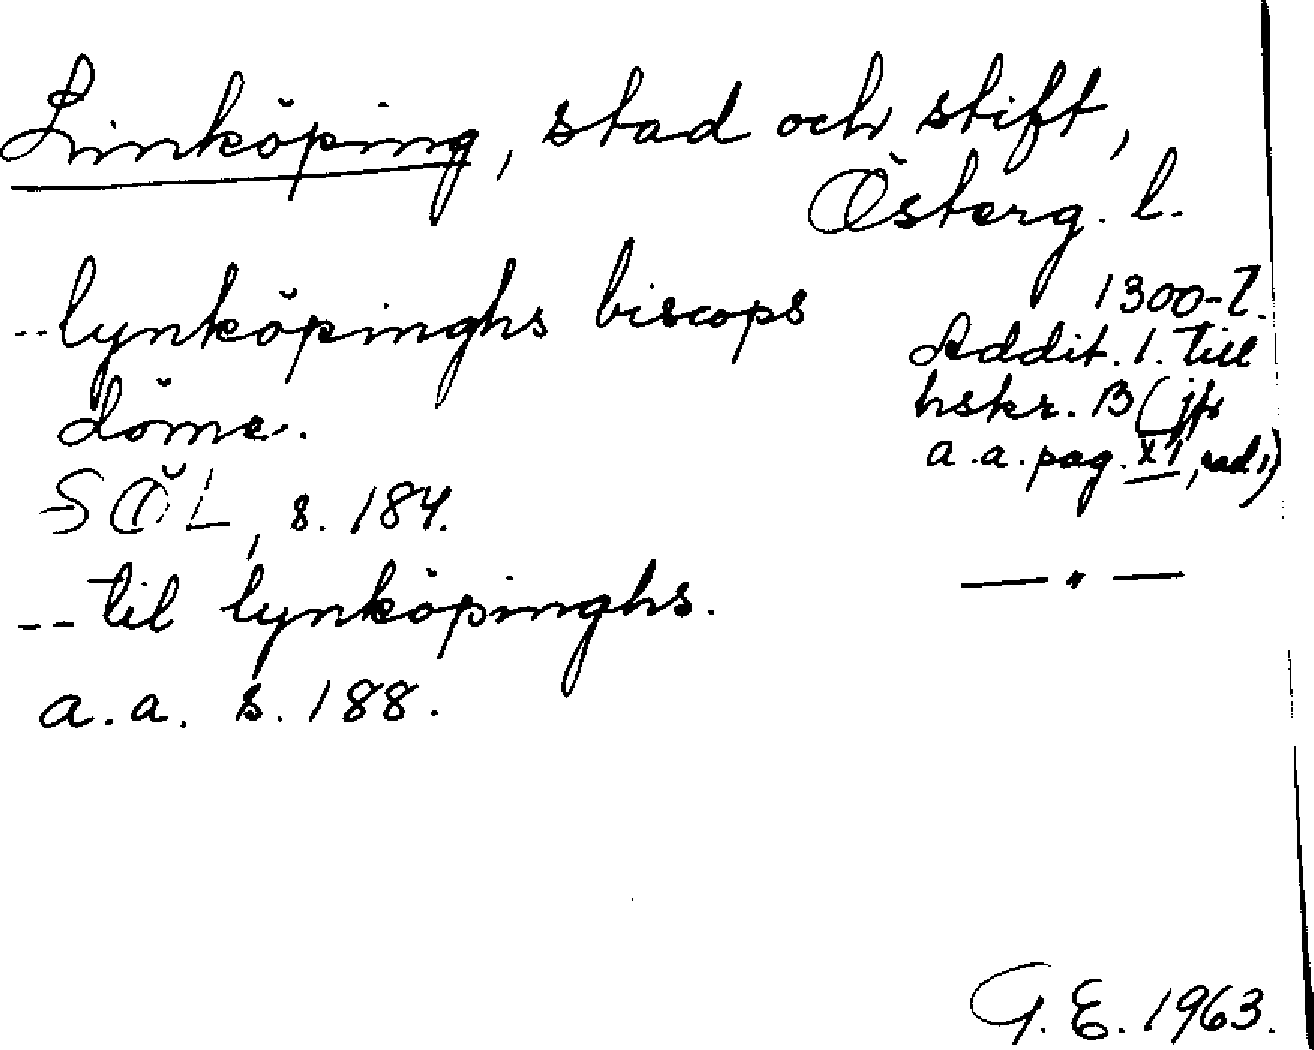 Linköping, stad och stift,
Österg. l.
--lynköpinghs biscops
döme.
SÖL, s. 184.
--til lynköpinghs.
a.a. s. 188.
1300-t.
Addit. 1. till
hskr. B (jfr
a.a. pag. XI, rad 1)
— " —
G. E. 1963.